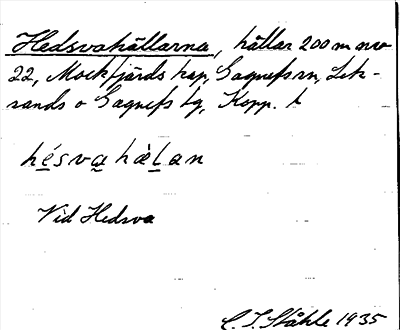 Hedsvahällarna, hällar 200 m nv
22, Mockfjärds kap, Gagnefs sn, Lek-
sands o Gagnefs tg, Kopp. l
hésvahàlan
Vid Hedsva
C. I. Ståhle 1935